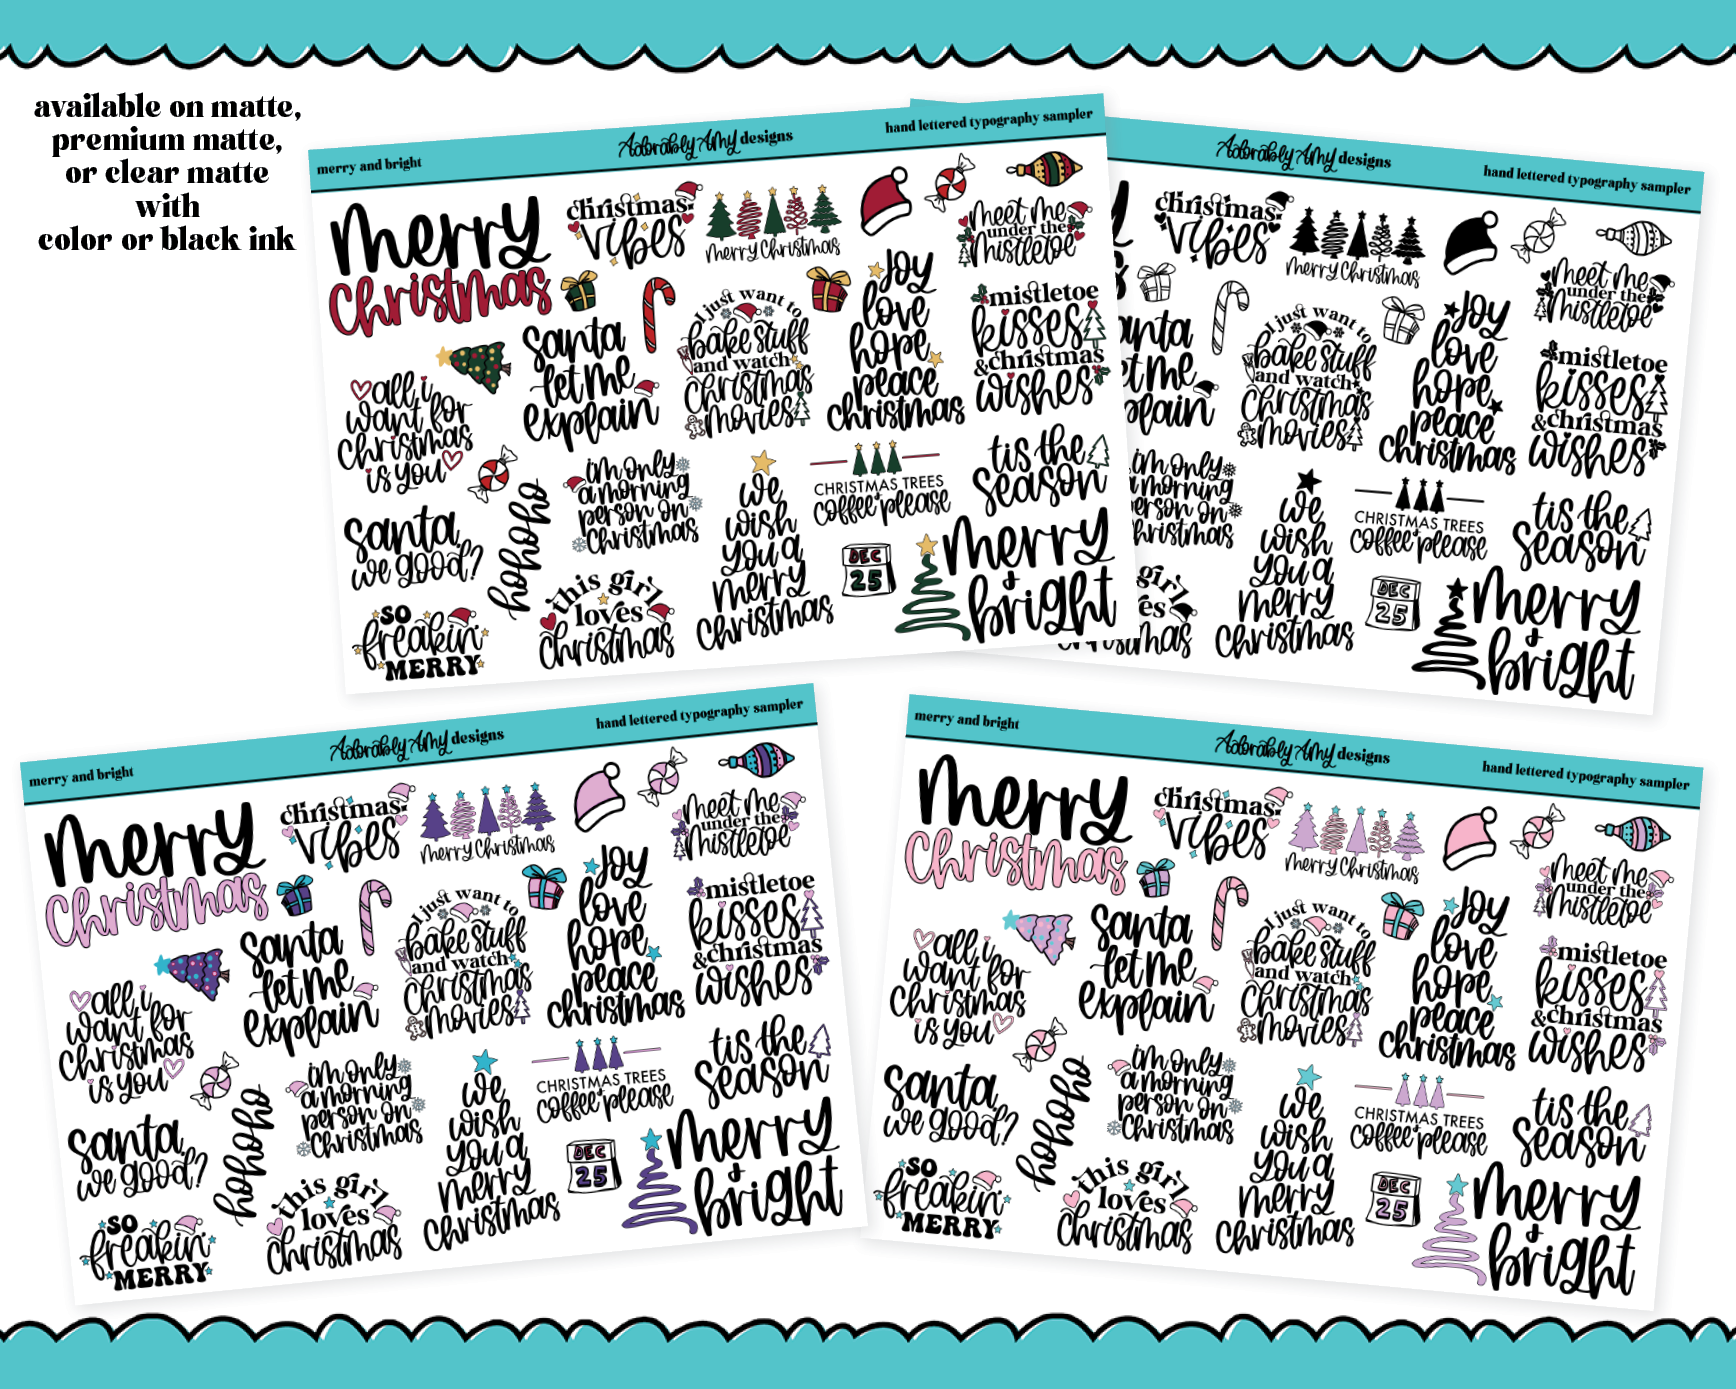 available on matte,
premium matte,
or clear matte
with
color or black ink
merry and bright
Adorably Amy designs
hand lettered typography sampler
merry
Christmas
christmas
vibes
merry Christmas
meet me
under the
mistletoe
all i
want for
christmas
is you
santa
let me
explain
I just want to
bake stuff
and watch
christmas
movies
joy
love
hope
peace
christmas
mistletoe
kisses
& christmas
wishes
santa
we good?
hohoho
i'm only
a morning
person on
christmas
we
wish
you a
merry
christmas
CHRISTMAS TREES
coffee please
tis the
season
so
freakin'
MERRY
this girl
loves
christmas
DEC
25
merry
&
bright
Adorably Amy designs
hand lettered typography sampler
christmas
vibes
merry Christmas
meet me
under the
mistletoe
anta
et me
plain
I just want to
bake stuff
and watch
christmas
movies
joy
love
hope
peace
christmas
mistletoe
kisses
& christmas
wishes
i'm only
a morning
erson on
hristmas
we
wish
you a
merry
christmas
CHRISTMAS TREES
coffee please
tis the
season
girl
es
christmas
DEC
25
merry
&
bright
merry and bright
Adorably Amy designs
hand lettered typography sampler
merry
Christmas
christmas
vibes
merry Christmas
meet me
under the
mistletoe
all i
want for
christmas
is you
santa
let me
explain
I just want to
bake stuff
and watch
christmas
movies
joy
love
hope
peace
christmas
mistletoe
kisses
& christmas
wishes
santa
we good?
hohoho
i'm only
a morning
person on
christmas
we
wish
you a
merry
christmas
CHRISTMAS TREES
coffee please
tis the
season
so
freakin'
MERRY
this girl
loves
christmas
DEC
25
merry
&
bright
merry and bright
Adorably Amy designs
hand lettered typography sampler
merry
Christmas
christmas
vibes
merry Christmas
meet me
under the
mistletoe
all i
want for
christmas
is you
santa
let me
explain
I just want to
bake stuff
and watch
christmas
movies
joy
love
hope
peace
christmas
mistletoe
kisses
& christmas
wishes
santa
we good?
hohoho
i'm only
a morning
person on
christmas
we
wish
you a
merry
christmas
CHRISTMAS TREES
coffee please
tis the
season
so
freakin'
MERRY
this girl
loves
christmas
DEC
25
merry
&
bright